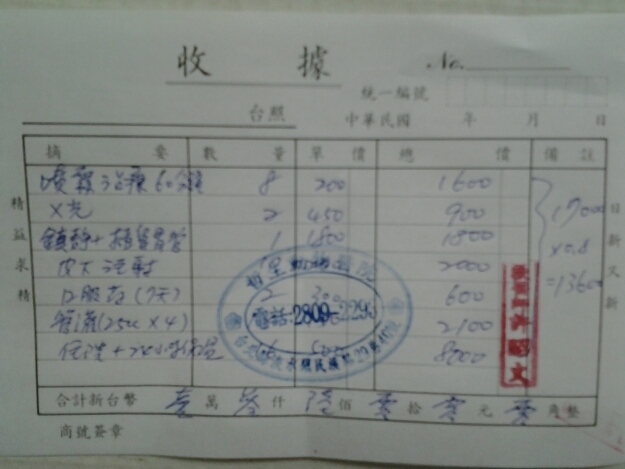 收據 No.
統一編號
台照 中華民國 年 月 日
摘要 數量 單價 總價 備註
噴霧治療60分鐘 8 200 1600
X光 2 450 900 17000
鎮靜+ 1 1800 1800 x0.8
皮下注射 2000 =13600
口服藥(7天) 2 300 600
電話:2809-2295
(25cc X 4) 2100
住院+ 8000
合計新台幣 壹萬參仟陸佰零拾零元零角整
商號簽章
精益求精
日新又新